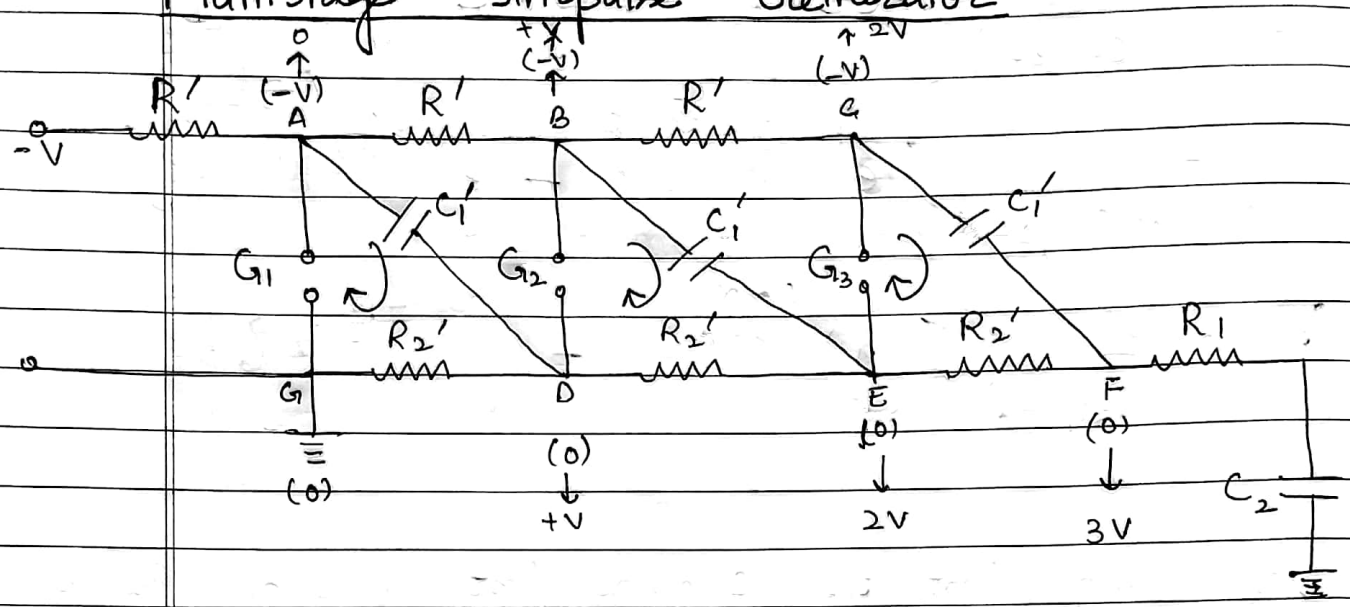 Multistage Impulse Generator
0 +V ↑ 2V
↑ (-V) (-V)
(-V) ↑
R' A R' B R' G
-V
C₁' C₁' C₁'
G₁ G₂ G₃
R₂' R₂' R₂' R₁
G D E F
(0) (0) (0) (0)
↓ ↓ ↓ C₂
+V 2V 3V